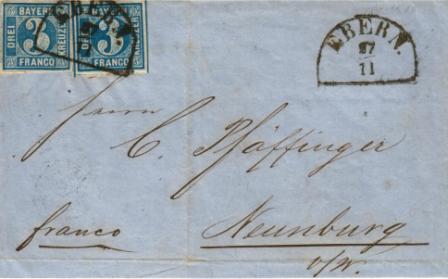 BAYERN BAYERN
DREI 3 KREUZER DREI 3 KREUZER
FRANCO FRANCO
EBERN.
27
11
Herrn
C. Pfäffinger
franco
Neunburg
v/W.